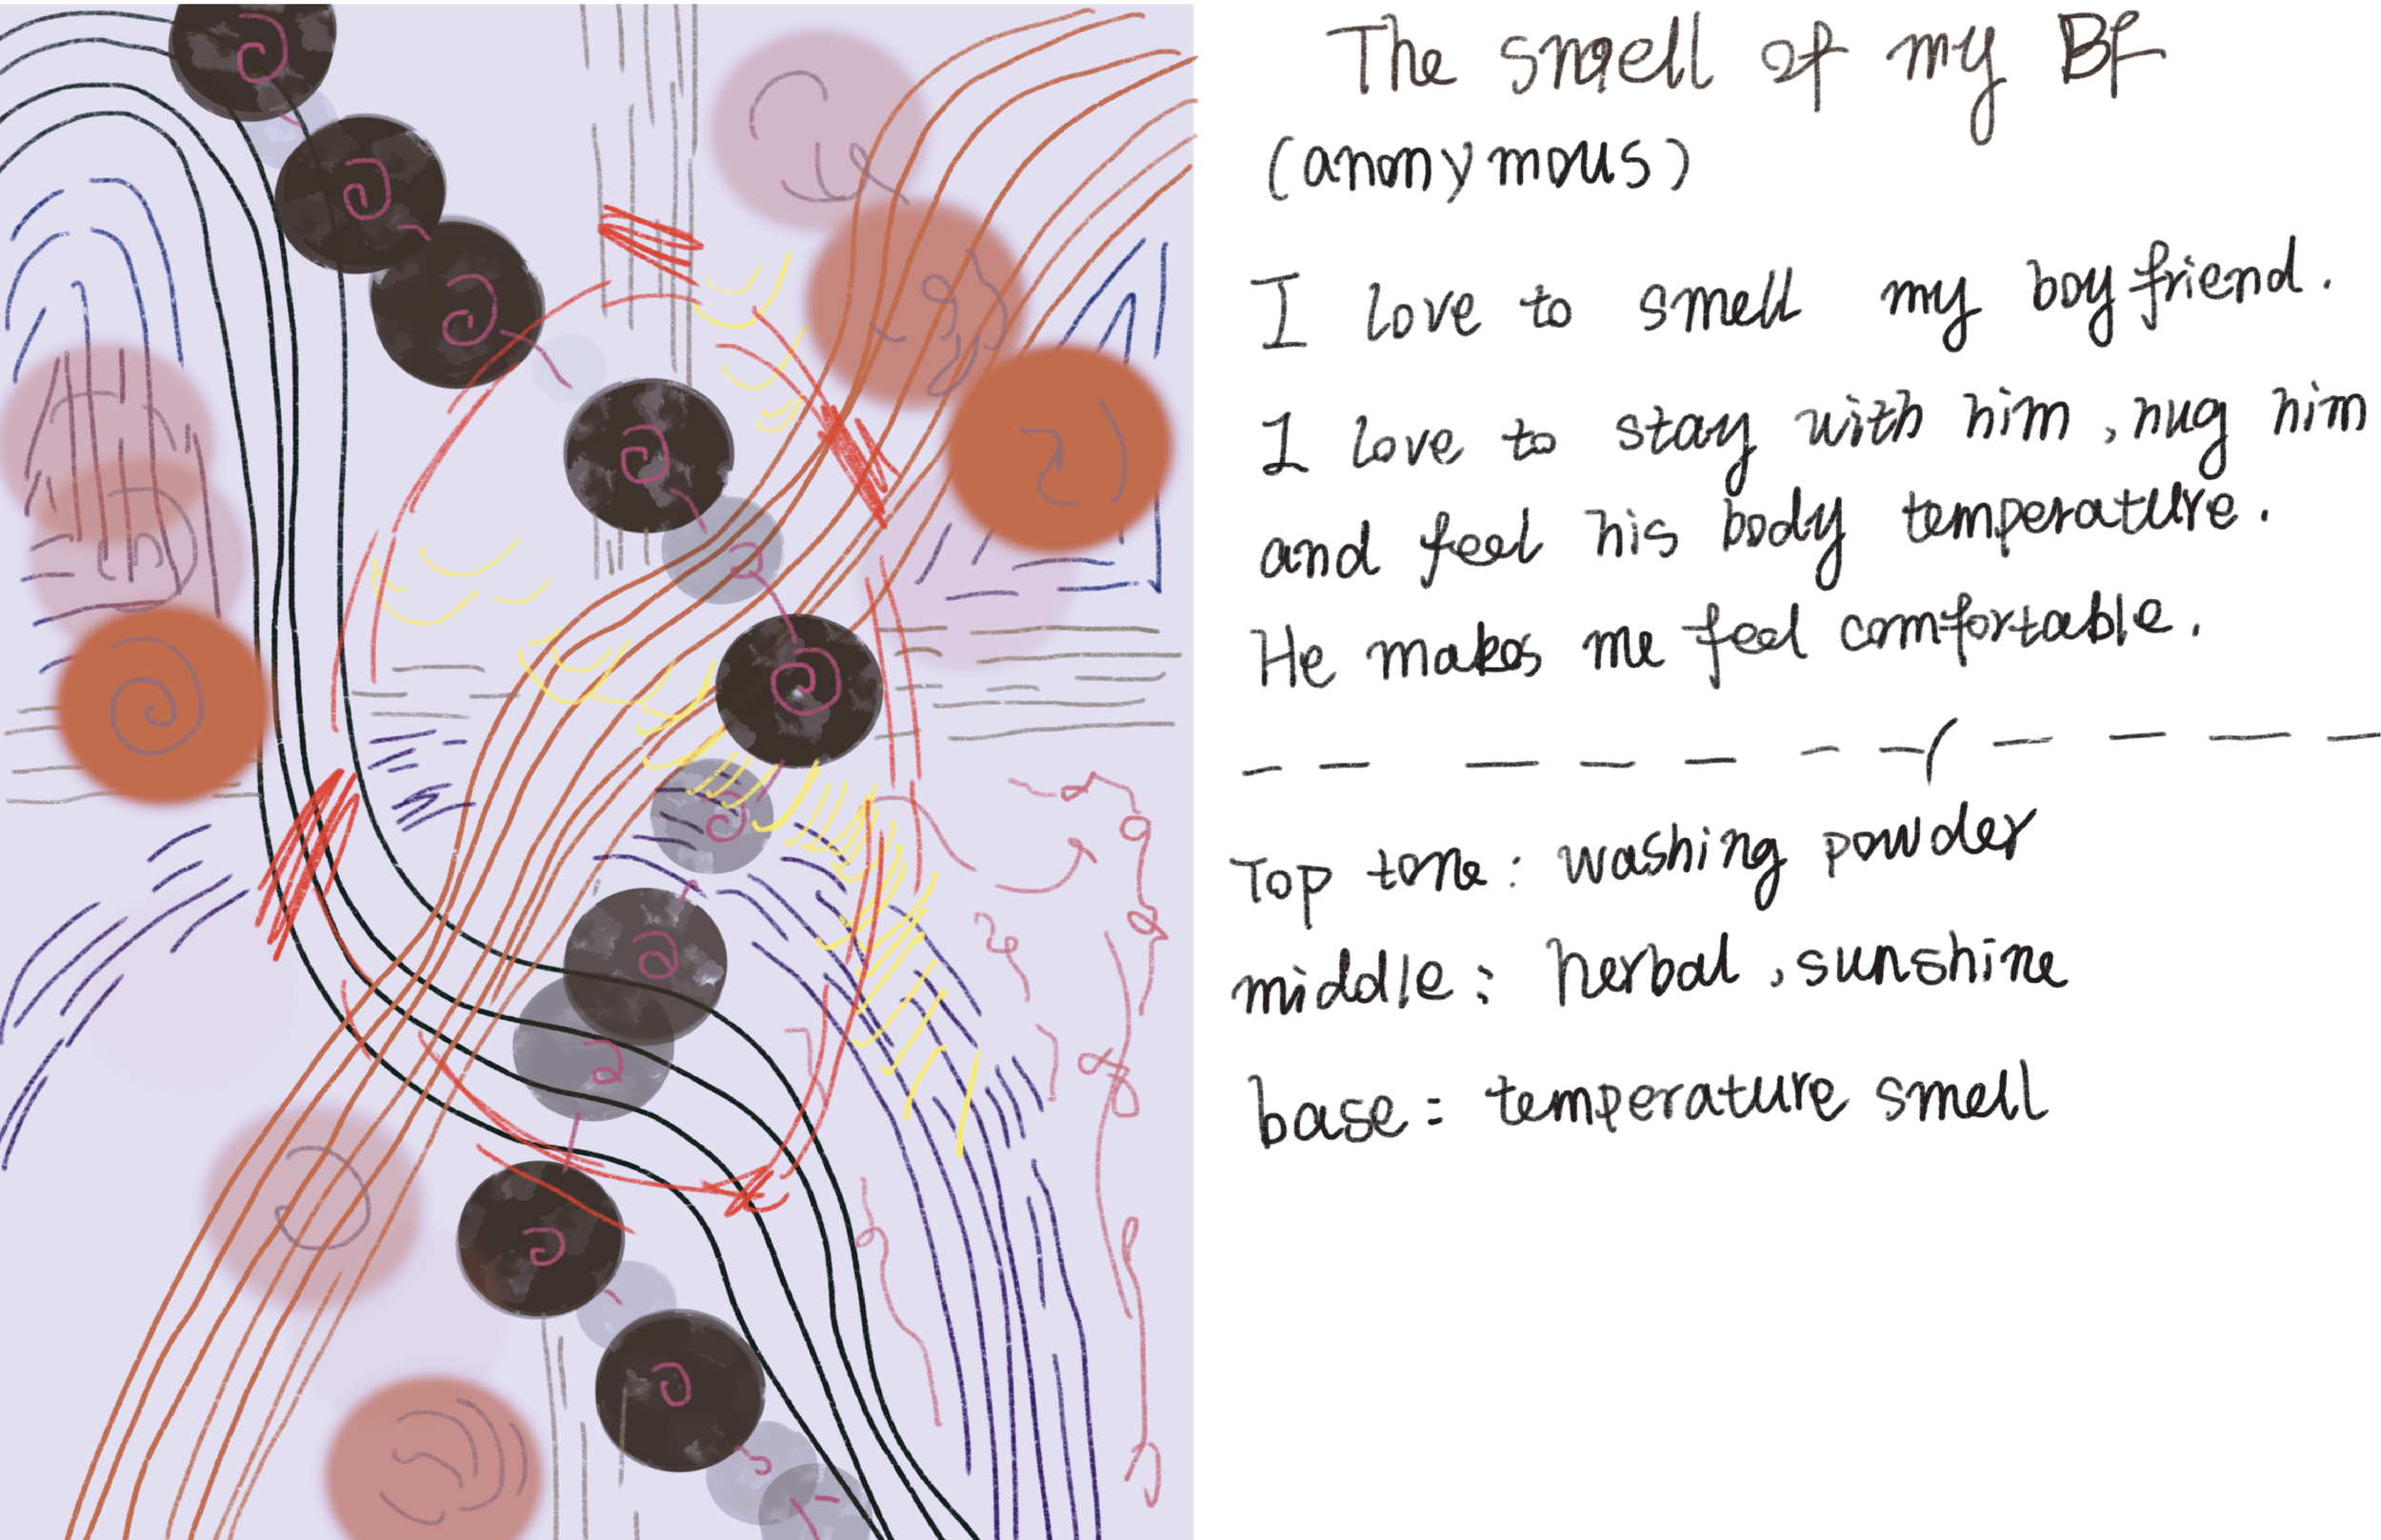 The smell of my BF
(anonymous)
I love to smell my boyfriend.
I love to stay with him, hug him
and feel his body temperature.
He makes me feel comfortable.
Top tone: washing powder
middle: herbal, sunshine
base: temperature smell